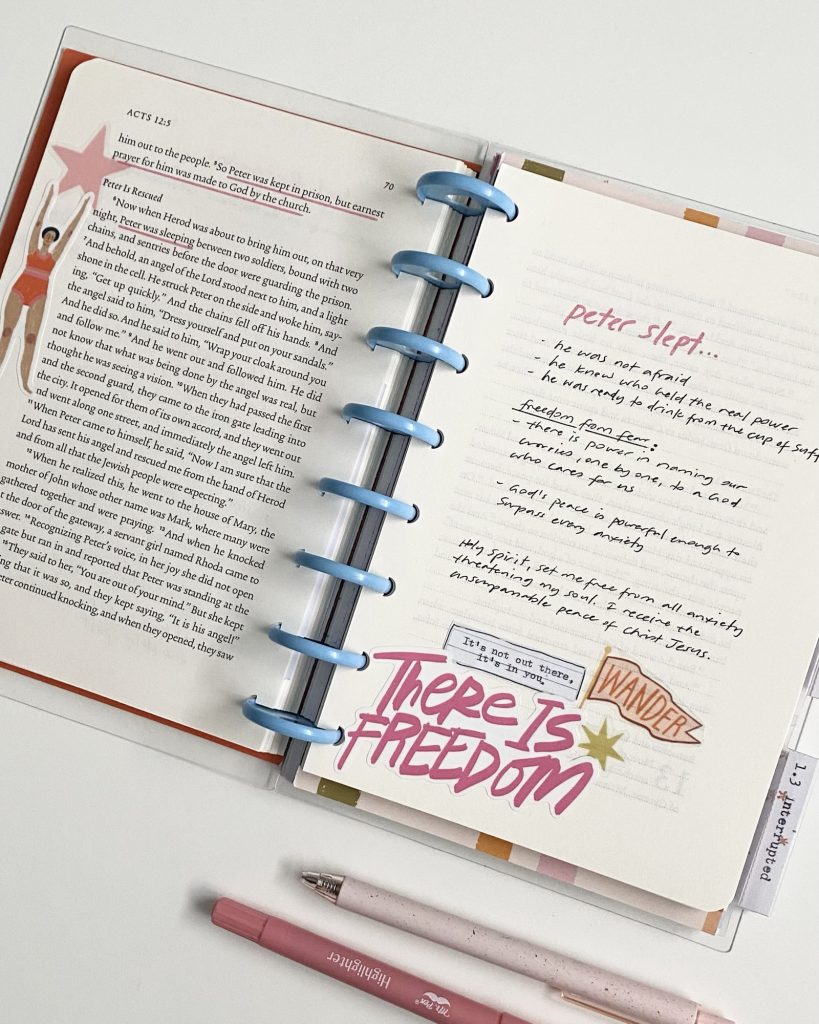 ACTS 12:5
70
him out to the people. ⁵So Peter was kept in prison, but earnest
prayer for him was made to God by the church.
Peter Is Rescued
⁶Now when Herod was about to bring him out, on that very
night, Peter was sleeping between two soldiers, bound with two
chains, and sentries before the door were guarding the prison.
⁷And behold, an angel of the Lord stood next to him, and a light
shone in the cell. He struck Peter on the side and woke him, say-
ing, “Get up quickly.” And the chains fell off his hands. ⁸And
the angel said to him, “Dress yourself and put on your sandals.”
And he did so. And he said to him, “Wrap your cloak around you
and follow me.” ⁹And he went out and followed him. He did
not know that what was being done by the angel was real, but
thought he was seeing a vision. ¹⁰When they had passed the first
and the second guard, they came to the iron gate leading into
the city. It opened for them of its own accord, and they went out
nd went along one street, and immediately the angel left him.
¹¹When Peter came to himself, he said, “Now I am sure that the
Lord has sent his angel and rescued me from the hand of Herod
and from all that the Jewish people were expecting.”
¹²When he realized this, he went to the house of Mary, the
mother of John whose other name was Mark, where many were
gathered together and were praying. ¹³And when he knocked
t the door of the gateway, a servant girl named Rhoda came to
swer. ¹⁴Recognizing Peter’s voice, in her joy she did not open
gate but ran in and reported that Peter was standing at the
¹⁵They said to her, “You are out of your mind.” But she kept
ing that it was so, and they kept saying, “It is his angel!”
eter continued knocking, and when they opened, they saw
peter slept...
- he was not afraid
- he knew who held the real power
- he was ready to drink from the cup of suff
freedom from fear:
- there is power in naming our
worries, one by one, to a God
who cares for us
- God's peace is powerful enough to
surpass every anxiety
Holy Spirit, set me free from all anxiety
threatening my soul. I receive the
unsurpassable peace of Christ Jesus.
It's not out there,
it's in you.
WANDER
There Is
FREEDOM
13
1.3 interrupted
Highlighter
Mr. Pen